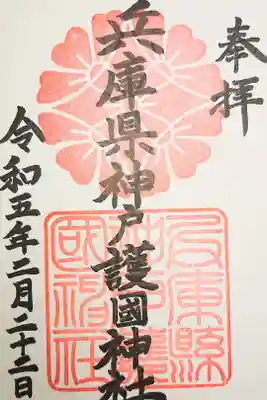 奉拝
兵庫県神戸護國神社
令和五年二月二十二日
兵庫縣
神戸護
國神社